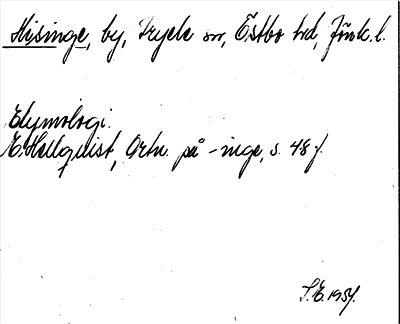 Hisinge, by, Tryele sn, Östbo hd, Jönk. l.
Etymologi.
E. Hellquist, Ortn. på -inge, s. 48 f.
S.E. 1954.